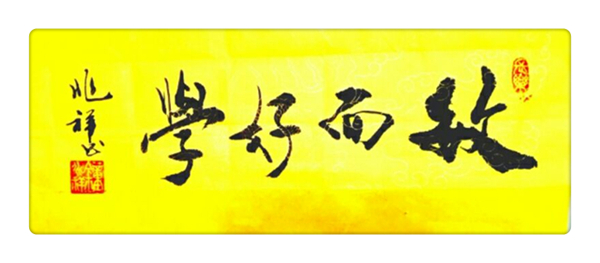 敏而好學
兆祥书